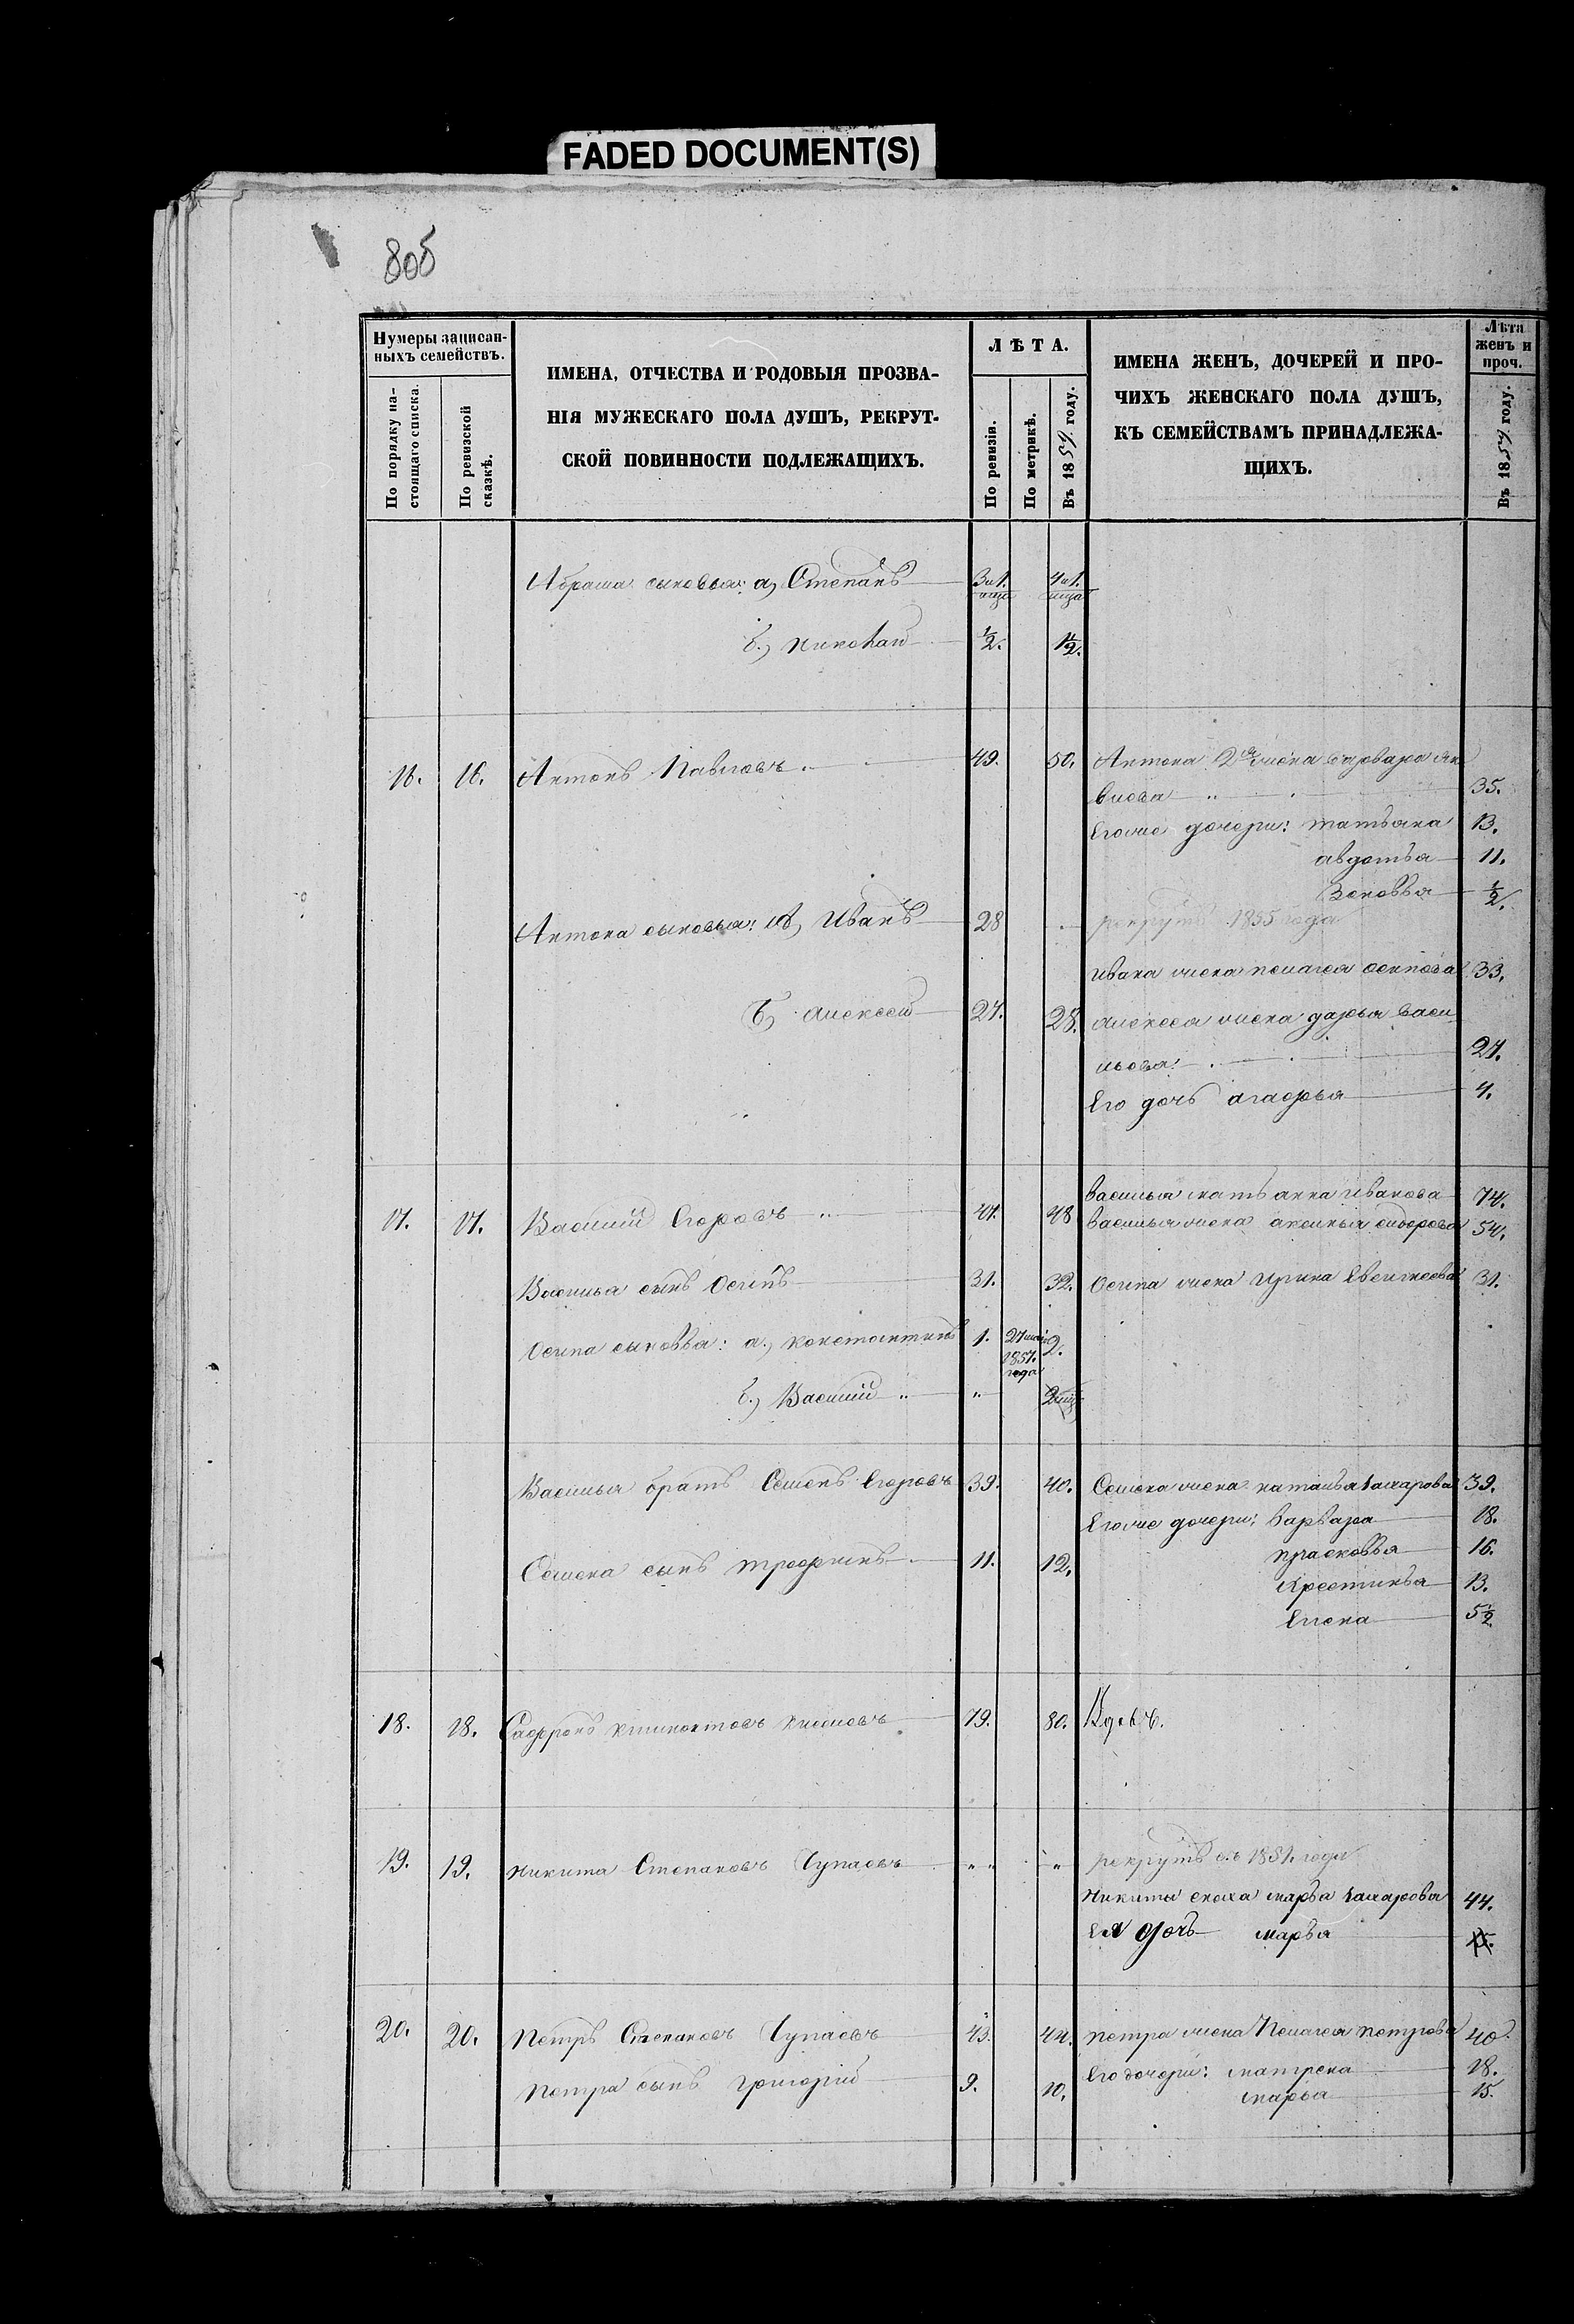 FADED DOCUMENT(S)
805
Нумеры записан-
ныхъ семействъ.
По порядку на-
стоящаго списка.
По ревизской
сказкѣ.
ИМЕНА, ОТЧЕСТВА И РОДОВЫЯ ПРОЗВА-
НІЯ МУЖЕСКАГО ПОЛА ДУШЪ, РЕКРУТ-
СКОЙ ПОВИННОСТИ ПОДЛЕЖАЩИХЪ.
ЛѢТА.
По ревизіи.
По метрикѣ.
Въ 1859 году.
ИМЕНА ЖЕНЪ, ДОЧЕРЕЙ И ПРО-
ЧИХЪ ЖЕНСКАГО ПОЛА ДУШЪ,
КЪ СЕМЕЙСТВАМЪ ПРИНАДЛЕЖА-
ЩИХЪ.
Лѣта
женъ и
проч.
Въ 1859 году.
Абрама сыновья: а, Степанъ 3 и 1. 4 и 1.
б., николай ½. 1½.
16. 16. Антонъ Павловъ. 49. 50. Антона 2я жена варвара
35.
Егоже дочери: татьяна 13.
авдотья 11.
Зеновья ½.
Антона сыновья: Иванъ 28 рекрутъ 1855 года
Ивана жена пелагея осипова 33.
б, алексей 27. 28. алексея жена дарья васи-
льева. 27.
Его дочь агафья 4.
василья мать анна Иванова 74.
17. 17. Василий Егоровъ 47. 48 василья жена аксинья сидорова 54.
Василья сынъ Осипъ 31. 32. Осипа жена Ирина Евсигнеева 31.
Осипа сыновья: а., константинъ 1. 27 1857. года 2.
б., Василий " "
Василья братъ Семенъ Егоровъ 39. 40. Семена жена наталья Захарова 39.
Егоже дочери: варвара 18.
Семена сынъ трофимъ 11. 12. прасковья 16.
Крестинья 13.
Елена 5½
18. 18. Сафронъ 79. 80. Вдовъ.
19. 19. Никита Степановъ Чупаевъ " " " рекрутъ с.е 1851. года
Никиты сноха марья Захарова 44.
Ея дочь марья
20. 20. Петръ Степановъ Чупаевъ 43. 44. петра жена Пелагея петрова 40.
Его дочери: матрена 18.
Петра сынъ григорий 9. 10. марья 15.